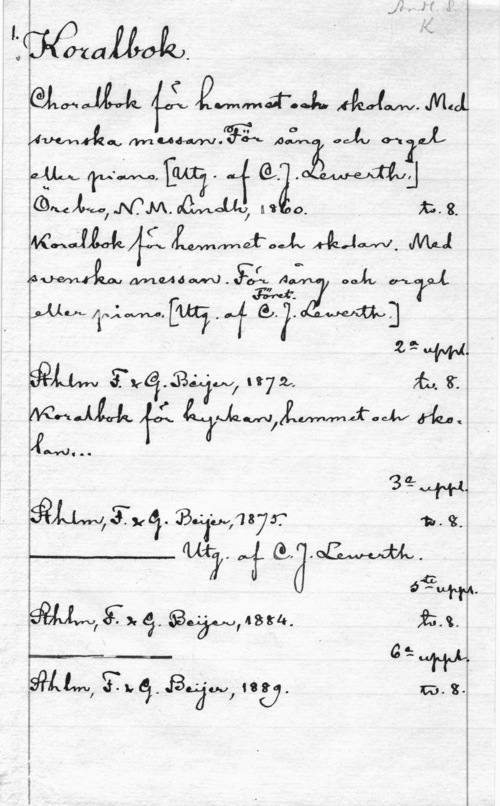 Andl. S.
K
1. Koralbok.
Choralbok för hemmet och skolan. Med
svenska messan. För sång och orgel
eller piano. [Utg. af C. J. Lewerth.]
Örebro, N. M. Lindh, 1860. tv. 8.
Koralbok för hemmet och skolan. Med
svenska messan. För sång och orgel
Föret.
eller piano. [Utg. af C. J. Lewerth.]
2a uppl.
Sthlm F. & G. Beijer, 1872. tv. 8.
Koralbok för kyrkan, hemmet och sko-
lan...
3e uppl.
Sthlm, F. & G. Beijer, 1875. tv. 8.
Utg. af C. J. Lewerth.
5te uppl.
Sthlm, F. & G. Beijer, 1884. tv. 8.
6e uppl.
Sthlm, F. & G. Beijer, 1889. tv. 8.